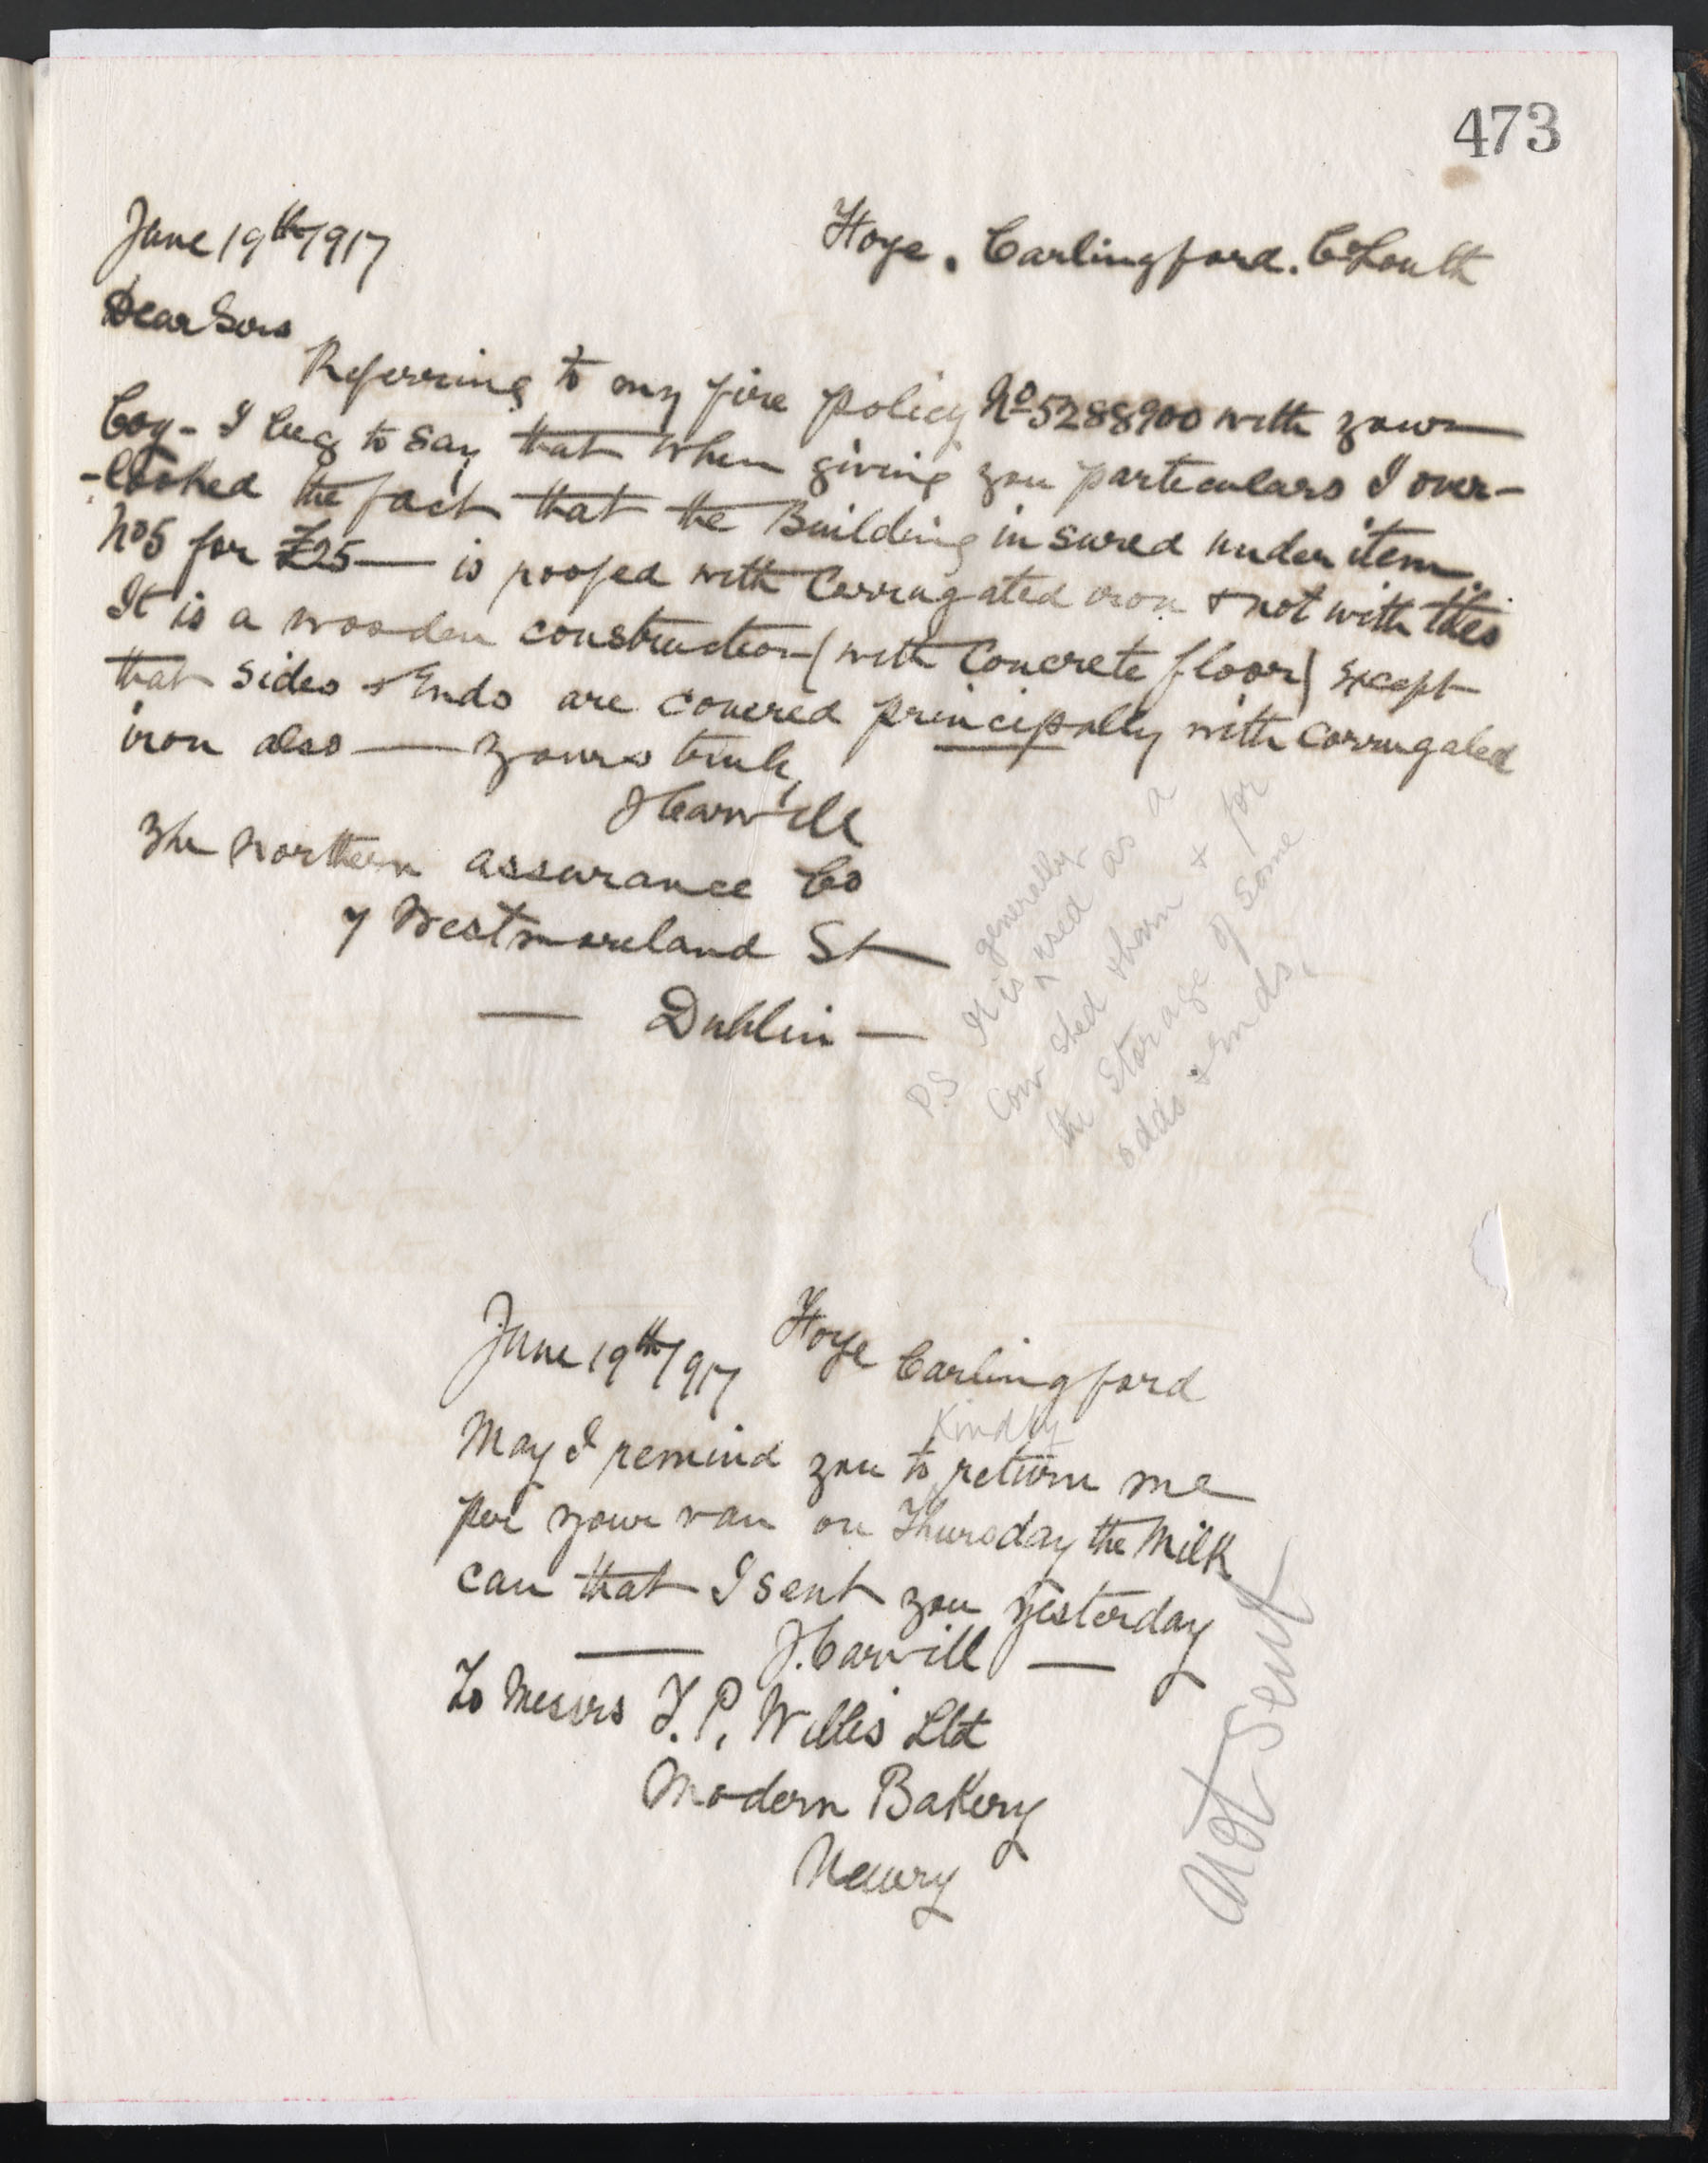 473
June 19th/917 Hoye, Carlingford. Co Louth
Dear Sirs
Referring to my fire policy No 5288900 with your
Coy - I beg to say that when giving you particulars I over-
-looked the fact that the Building insured under item
No 5 for £25 — is roofed with Corrugated iron & not with tiles
It is a wooden construction (with Concrete floor) except
that sides & Ends are covered principally with corrugated
iron also — Yours truly,
J Carvill
The Northern Assurance Co
7 Westmoreland St
— Dublin —
P.S It is generally used as a
Cow shed & barn & for
the Storage of Some
odds & Ends.
June 19th/917 Hoye Carlingford
May I remind you to Kindly return me
per your van on Thursday the Milk
can that I sent you yesterday
— J. Carvill —
To Messrs F. P. Willis Ltd
Modern Bakery
Newry
Not Sent